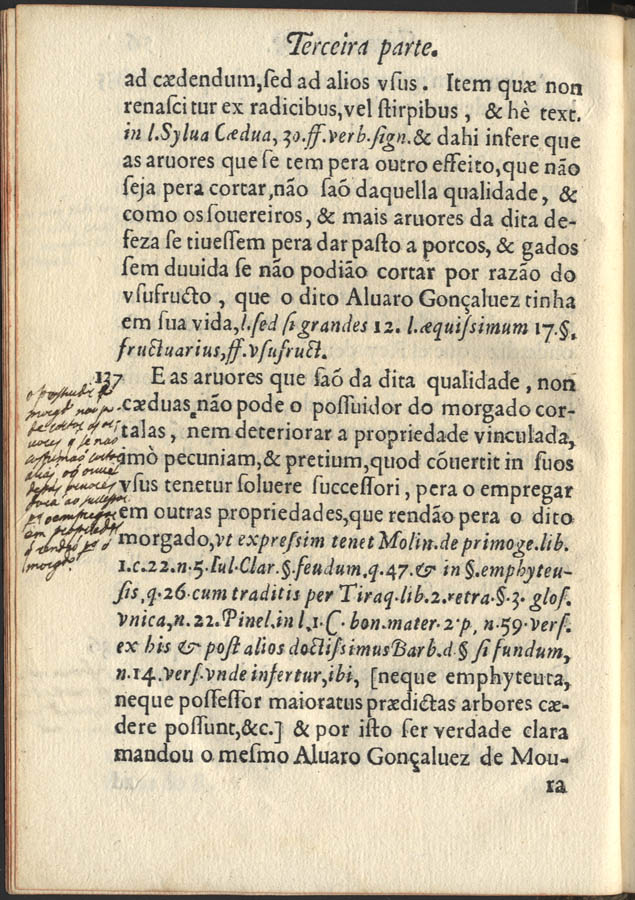 Terceira parte.
ad cædendum,ſed ad alios vſus. Item quæ non
renaſcitur ex radicibus,vel ſtirpibus, & hè text.
in l.Sylua Cædua, 30.ff.verb.ſign.& dahi infere que
as aruores que ſe tem pera outro effeito,que não
ſeja pera cortar,não ſaõ daquella qualidade, &
como os ſouereiros, & mais aruores da dita de-
feza ſe tiueſſem pera dar paſto a porcos, & gados
ſem duuida ſe não podião cortar por razão do
vſufructo, que o dito Aluaro Gonçaluez tinha
em ſua vida,l.ſed ſi grandes 12. l.æquiſsimum 17.§.
fructuarius,ff.vſufruct.
137 E as aruores que ſaõ da dita qualidade, non
cæduas,não pode o poſſuidor do morgado cor-
talas, nem deteriorar a propriedade vinculada,
imò pecuniam,& pretium,quod cõuertit in ſuos
vſus tenetur ſoluere ſucceſſori, pera o empregar
em outras propriedades,que rendão pera o dito
morgado,vt expreſsim tenet Molin.de primoge.lib.
1.c.22.n.5.Iul.Clar.§.feudum.q.47.& in §.emphyteu-
ſis,q.26.cum traditis per Tiraq.lib.2.retra.§.3. gloſ.
vnica,n.22.Pinel.in l.1.C. bon.mater.2.p, n.59.verſ.
ex his & poſt alios doctiſsimus Barb.d.§ ſi fundum,
n.14.verſ.vnde infertur,ibi, [neque emphyteuta,
neque poſſeſſor maioratus prædictas arbores cæ-
dere poſſunt,&c.] & por iſto ſer verdade clara
mandou o meſmo Aluaro Gonçaluez de Mou-
ra
morgdo não po
uores q̃ se não
em propried.es
morg.do